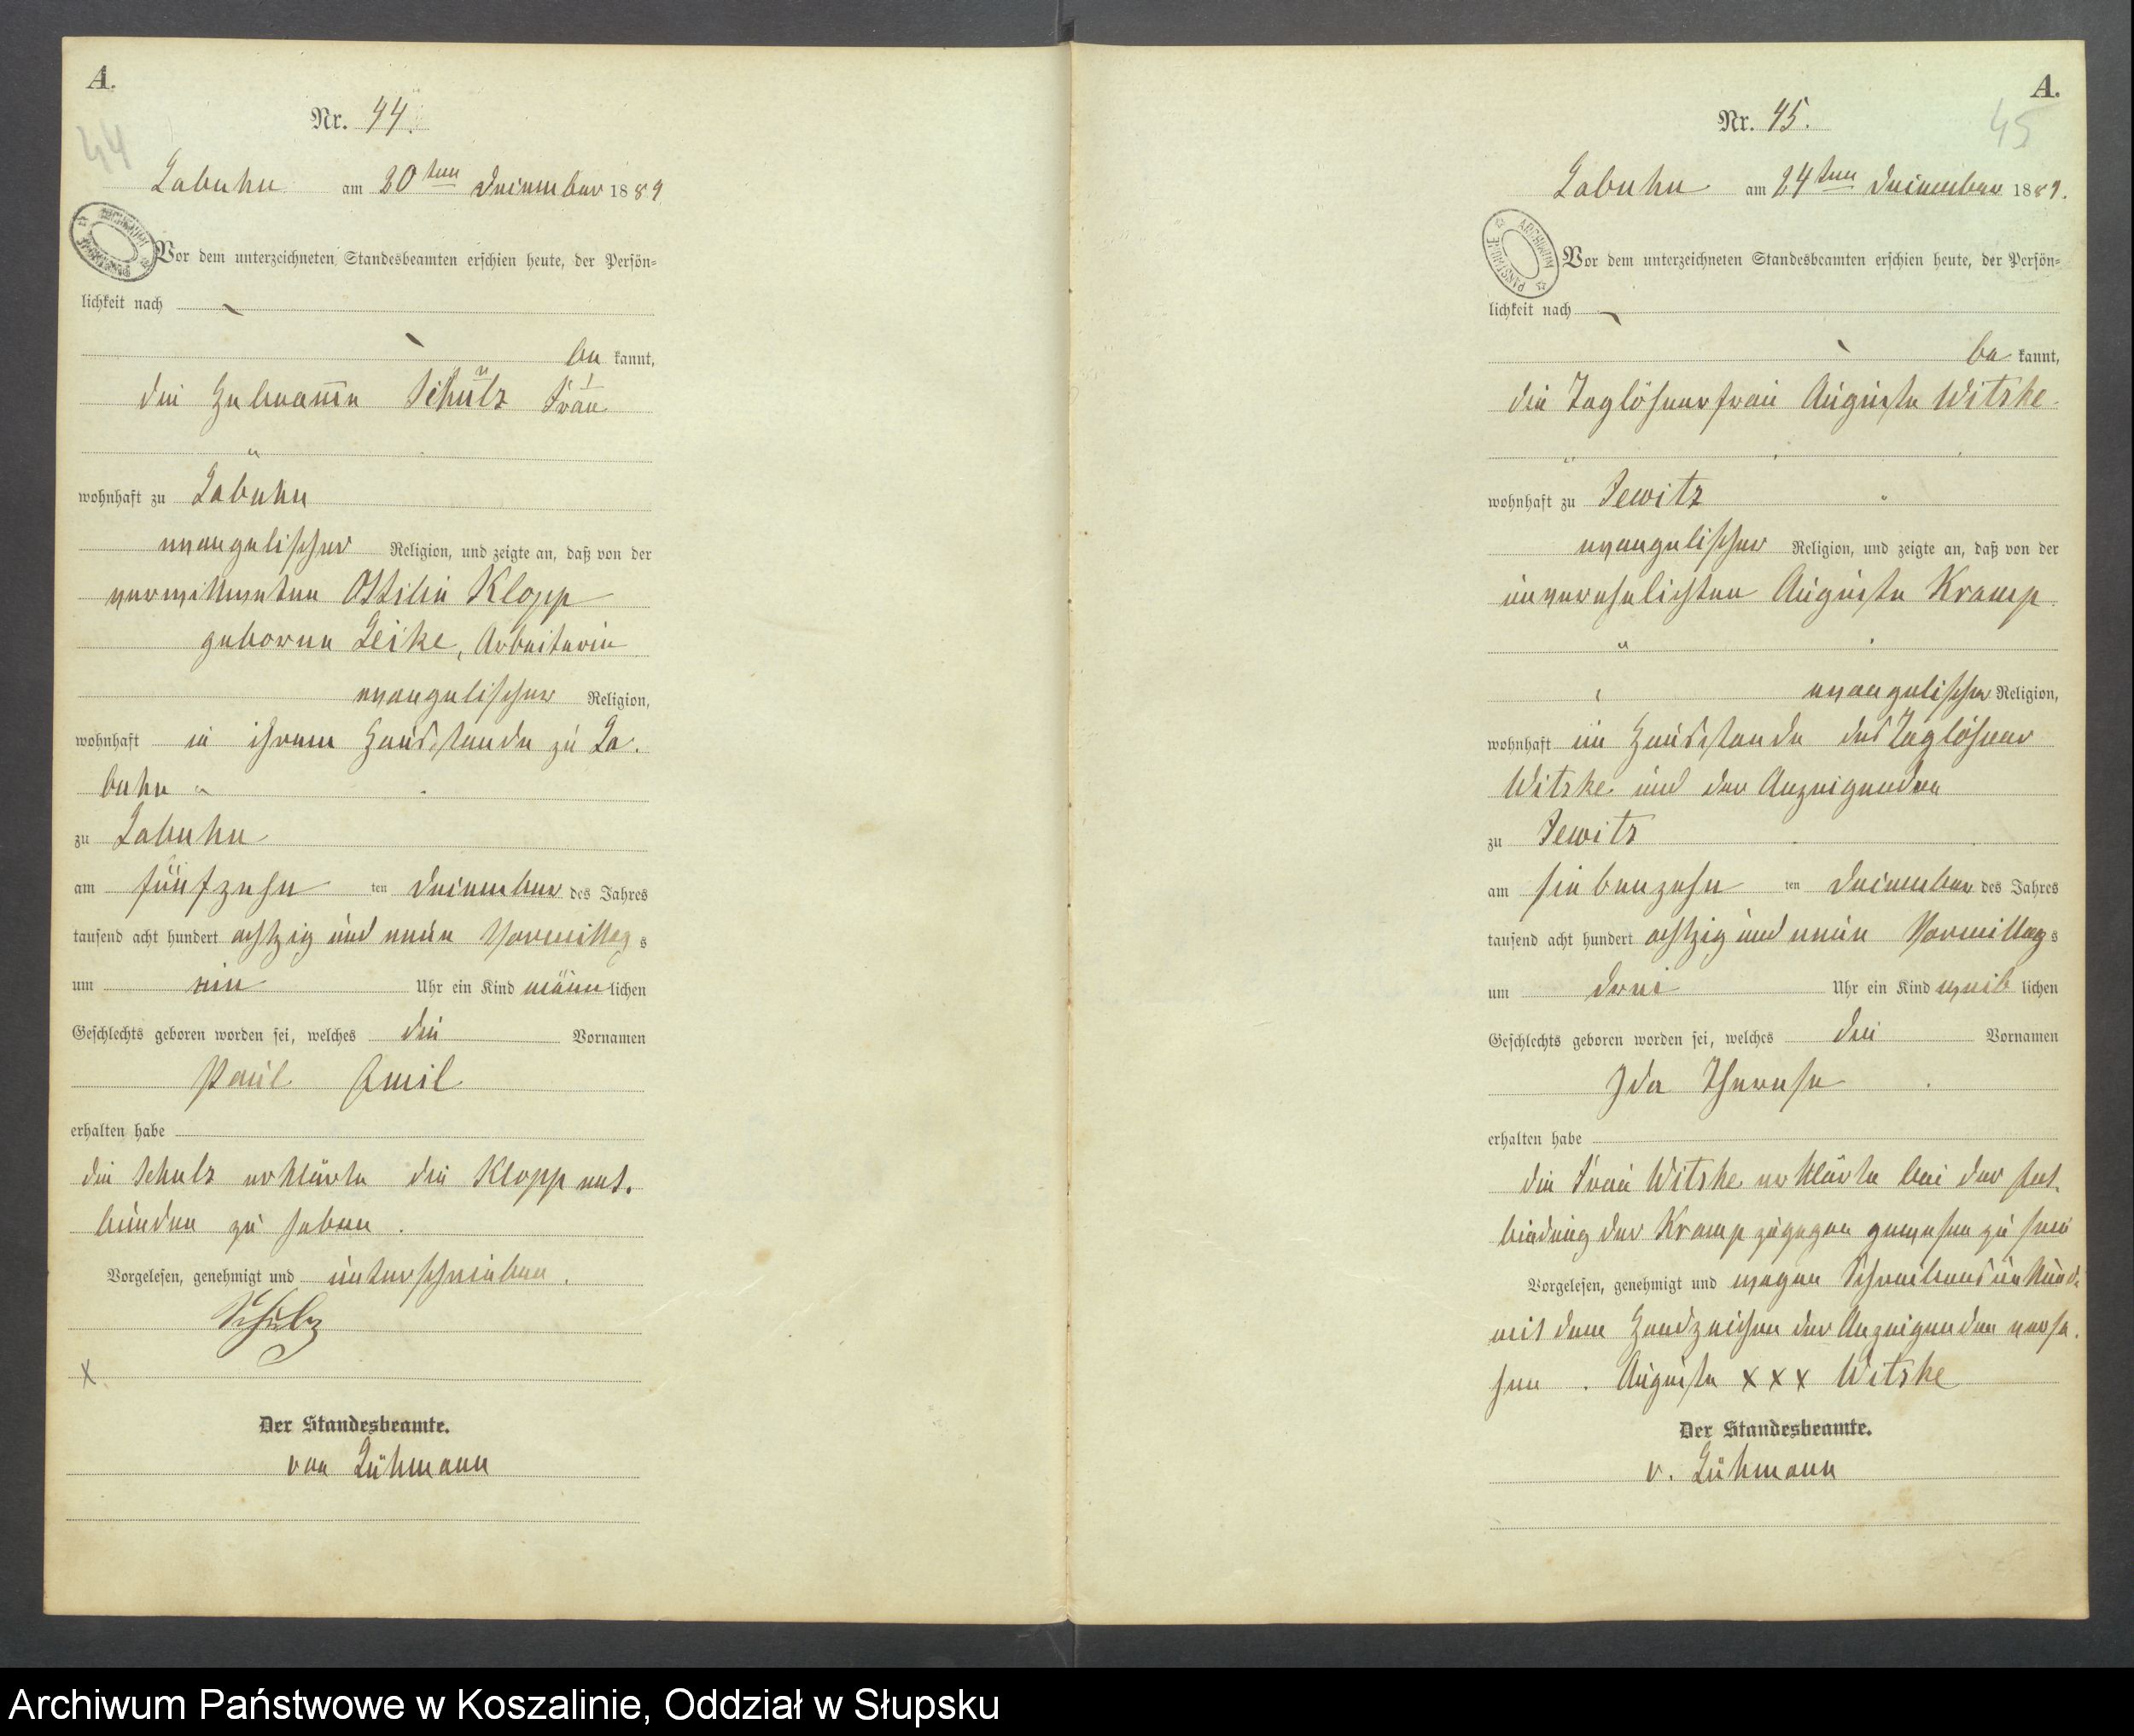 A.
44
Nr. 44.
Labuhn am 20ten Dezember 1889
Vor dem unterzeichneten Standesbeamten erschien heute, der Persön=
lichkeit nach
be kannt,
die Hebeamme Schulz Frau
wohnhaft zu Labuhn
evangelischer Religion, und zeigte an, daß von der
verwittweten Ottilie Klopp
geborne Leike, Arbeiterin
evangelischer Religion,
wohnhaft in ihrem Hausstande zu La.
buhn
zu Labuhn
am fünfzehn ten Dezember des Jahres
tausend acht hundert achtzig und neun Vormittag s
um ein Uhr ein Kind männ lichen
Geschlechts geboren worden sei, welches die Vornamen
Paul Emil
erhalten habe
die Schulz erklärte die Klopp ent.
bunden zu haben.
Vorgelesen, genehmigt und unterschrieben.
Schulz
x.
Der Standesbeamte.
von Lühmann
A.
45
Nr. 45.
Labuhn am 24ten Dezember 1889.
ARCHIWUM PAŃSTWOWE
Vor dem unterzeichneten Standesbeamten erschien heute, der Persön=
lichkeit nach
be kannt,
die Taglöhnerfrau Auguste Witzke
wohnhaft zu Jewitz
evangelischer Religion, und zeigte an, daß von der
unverehelichten Auguste Kramp
evangelischer Religion,
wohnhaft im Hausstande des Taglöhner
Witzke und der Anzeigenden
zu Jewitz
am siebenzehn ten Dezember des Jahres
tausend acht hundert achtzig und neun Vormittag s
um drei Uhr ein Kind weib lichen
Geschlechts geboren worden sei, welches die Vornamen
Ida Therese
erhalten habe
die Frau Witzke erklärte bei der Ent.
bindung der Kramp zugegen gewesen zu sein
Vorgelesen, genehmigt und wegen Schreibensunkund.
mit dem Handzeichen der Anzeigenden verse.
hen. Auguste x x x Witzke
Der Standesbeamte.
v. Lühmann
Archiwum Państwowe w Koszalinie, Oddział w Słupsku